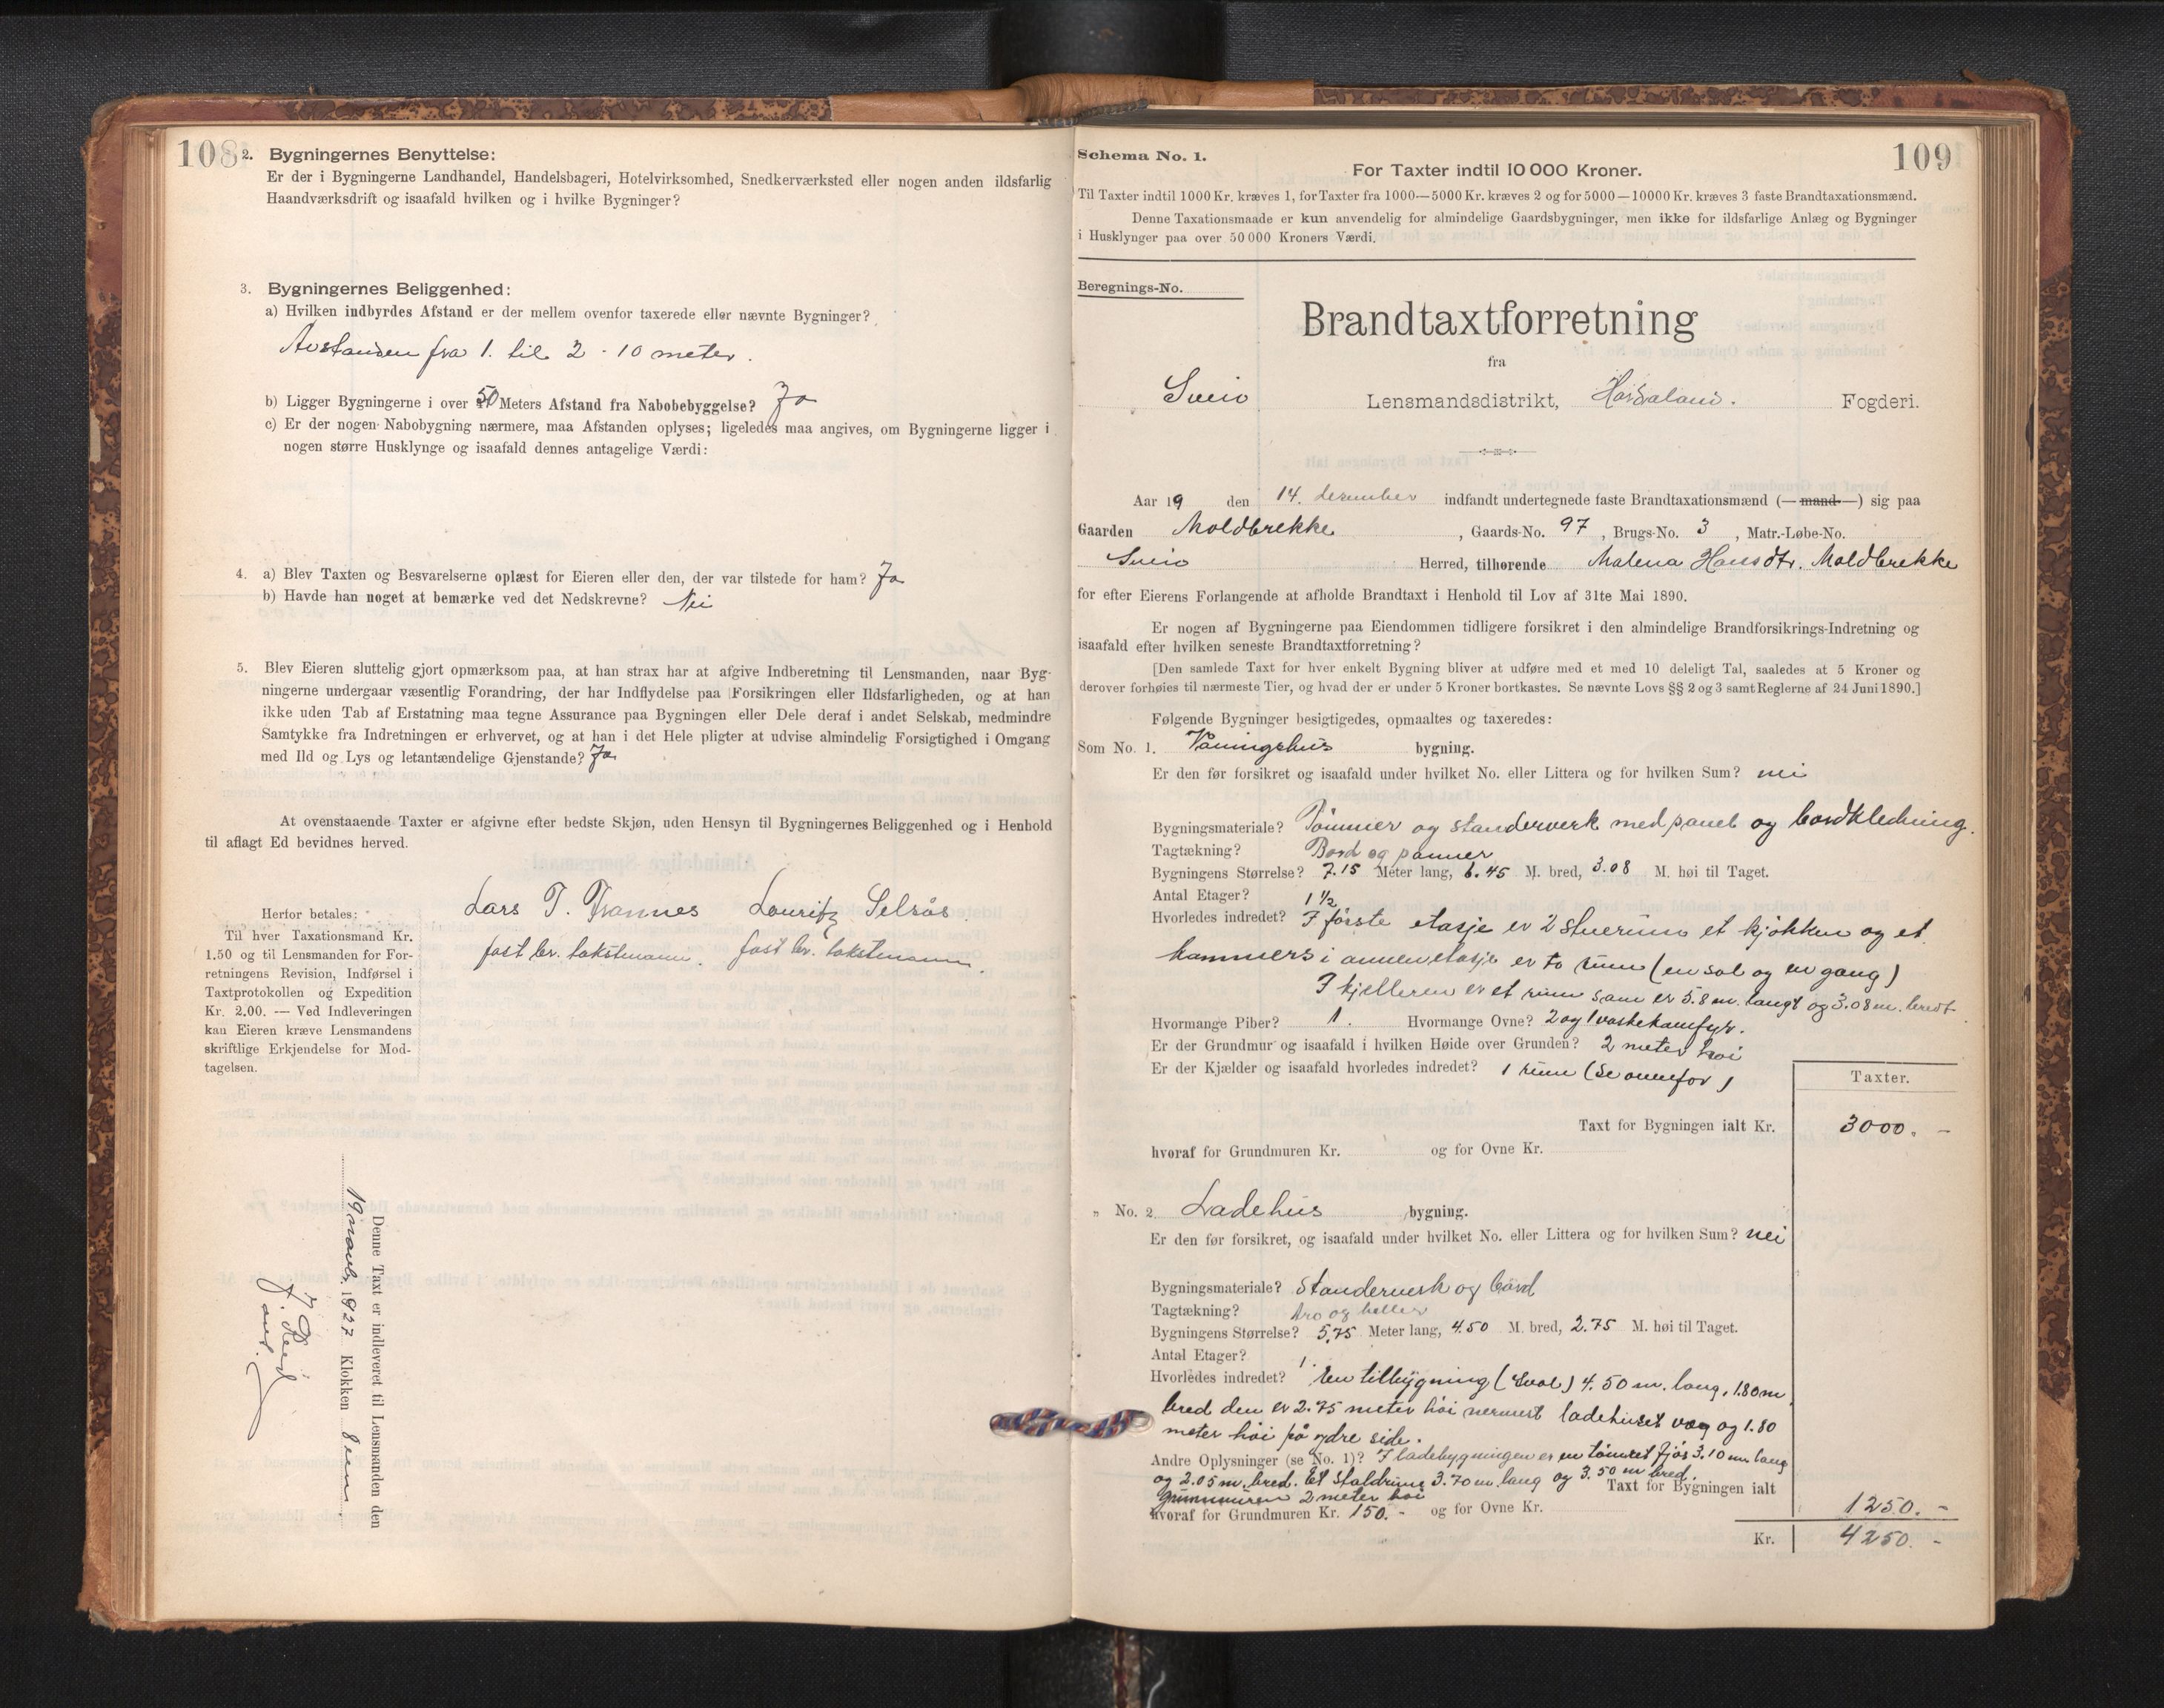 108
2. Bygningernes Benyttelse:
Er der i Bygningerne Landhandel, Handelsbageri, Hotelvirksomhed, Snedkerværksted eller nogen anden ildsfarlig
Haandværksdrift og isaafald hvilken og i hvilke Bygninger?
3. Bygningernes Beliggenhed:
a) Hvilken indbyrdes Afstand er der mellem ovenfor taxerede eller nævnte Bygninger?
Avstanden fra 1. til 2 - 10 meter.
b) Ligger Bygningerne i over 50 Meters Afstand fra Nabobebyggelse? Ja
c) Er der nogen Nabobygning nærmere, maa Afstanden oplyses; ligeledes maa angives, om Bygningerne ligger i
nogen større Husklynge og isaafald dennes antagelige Værdi:
4. a) Blev Taxten og Besvarelserne oplæst for Eieren eller den, der var tilstede for ham? Ja
b) Havde han noget at bemærke ved det Nedskrevne? Nei
5. Blev Eieren sluttelig gjort opmærksom paa, at han strax har at afgive Indberetning til Lensmanden, naar Byg-
ningerne undergaar væsentlig Forandring, der har Indflydelse paa Forsikringen eller Ildsfarligheden, og at han
ikke uden Tab af Erstatning maa tegne Assurance paa Bygningen eller Dele deraf i andet Selskab, medmindre
Samtykke fra Indretningen er erhvervet, og at han i det Hele pligter at udvise almindelig Forsigtighed i Omgang
med Ild og Lys og letantændelige Gjenstande? Ja
At ovenstaaende Taxter er afgivne efter bedste Skjøn, uden Hensyn til Bygningernes Beliggenhed og i Henhold
til aflagt Ed bevidnes herved.
Lars T. Trannes Lauritz Selsås
fast br. takstmann. fast br. takstmann.
Herfor betales:
Til hver Taxationsmand Kr.
1.50 og til Lensmanden for For-
retningens Revision, Indførsel i
Taxtprotokollen og Expedition
Kr. 2.00. — Ved Indleveringen
kan Eieren kræve Lensmandens
skriftlige Erkjendelse for Mod-
tagelsen.
Denne Taxt er indleveret til Lensmanden den
19 mars 1927 Klokken 8 em
109
Schema No. 1.
For Taxter indtil 10 000 Kroner.
Til Taxter indtil 1000 Kr. kræves 1, for Taxter fra 1000—5000 Kr. kræves 2 og for 5000—10000 Kr. kræves 3 faste Brandtaxationsmænd.
Denne Taxationsmaade er kun anvendelig for almindelige Gaardsbygninger, men ikke for ildsfarlige Anlæg og Bygninger
i Husklynger paa over 50 000 Kroners Værdi.
Beregnings-No.
Brandtaxtforretning
fra
Sveio Lensmandsdistrikt, Hordaland. Fogderi.
Aar 19 den 14. desember indfandt undertegnede faste Brandtaxationsmænd (—mand—) sig paa
Gaarden Moldbrekke, Gaards-No. 97, Brugs-No. 3, Matr.-Løbe-No.
Sveio Herred, tilhørende Malena Hansdtr. Moldbrekke
for efter Eierens Forlangende at afholde Brandtaxt i Henhold til Lov af 31te Mai 1890.
Er nogen af Bygningerne paa Eiendommen tidligere forsikret i den almindelige Brandforsikrings-Indretning og
isaafald efter hvilken seneste Brandtaxtforretning?
[Den samlede Taxt for hver enkelt Bygning bliver at udføre med et med 10 deleligt Tal, saaledes at 5 Kroner og
derover forhøies til nærmeste Tier, og hvad der er under 5 Kroner bortkastes. Se nævnte Lovs §§ 2 og 3 samt Reglerne af 24 Juni 1890.]
Følgende Bygninger besigtigedes, opmaaltes og taxeredes:
Som No. 1. Våningshus bygning.
Er den før forsikret og isaafald under hvilket No. eller Littera og for hvilken Sum? nei
Bygningsmateriale? Tømmer og standerverk med panel og bordkledning.
Tagtækning? Bord og panner
Bygningens Størrelse? 7.15 Meter lang, 6.45 M. bred, 3.08 M. høi til Taget.
Antal Etager? 1 ½
Hvorledes indredet? I første etasje er 2 stuerum et kjøkken og et
kammers i annen etasje er to rum (en sal og en gang)
I kjelleren er et rum som er 5.8 m. langt og 3.08 m. bredt.
Hvormange Piber? 1. Hvormange Ovne? 2 og 1 vaskekomfyr.
Er der Grundmur og isaafald i hvilken Høide over Grunden? 2 meter høi
Er der Kjælder og isaafald hvorledes indredet? 1 rum (se ovenfor)
Taxter.
Taxt for Bygningen ialt Kr. 3000. -
hvoraf for Grundmuren Kr. og for Ovne Kr.
" No. 2 Ladehus bygning.
Er den før forsikret, og isaafald under hvilket No. eller Littera og for hvilken Sum? nei
Bygningsmateriale? Standerverk og bord
Tagtækning? tro og heller
Bygningens Størrelse? 5,75 Meter lang, 4.50 M. bred, 2.75 M. høi til Taget.
Antal Etager? 1.
Hvorledes indredet? En tilbygning (Sval) 4.50 m. lang, 1.80 m
bred den er 2.75 meter høi nermest ladehuset væg og 1.80
meter høi på ydre side.
Andre Oplysninger (se No. 1)? I ladebygningen er en tømret fjøs 3.10 m. lang
og 2.05 m. bred. Et staldrum 3.70 m. lang og 3.50 m bred.
Taxt for Bygningen ialt 1250. -
grunnmuren 2 meter høi
hvoraf for Grundmuren Kr. 150. - og for Ovne Kr.
Kr. 4250. -